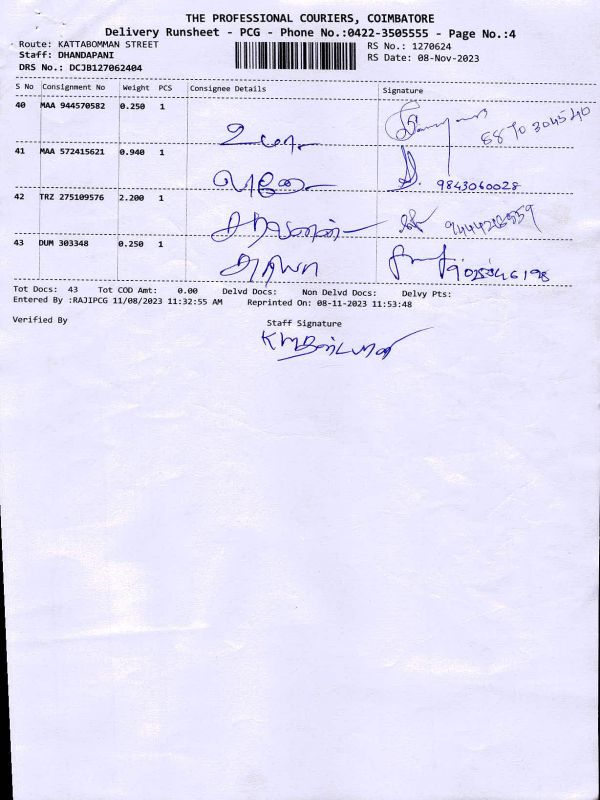 THE PROFESSIONAL COURIERS, COIMBATORE
Delivery Runsheet - PCG - Phone No.:0422-3505555 - Page No.:4
Route: KATTABOMMAN STREET RS No.: 1270624
Staff: DHANDAPANI RS Date: 08-Nov-2023
DRS No.: DCJB127062404
S No Consignment No Weight PCS Consignee Details Signature
40 MAA 944570582 0.250 1 உமா
41 MAA 572415621 0.940 1 9843060028
42 TRZ 275109576 2.200 1 சரவணன்
43 DUM 303348 0.250 1
Tot Docs: 43 Tot COD Amt: 0.00 Delvd Docs: Non Delvd Docs: Delvy Pts:
Entered By :RAJIPCG 11/08/2023 11:32:55 AM Reprinted On: 08-11-2023 11:53:48
Verified By Staff Signature